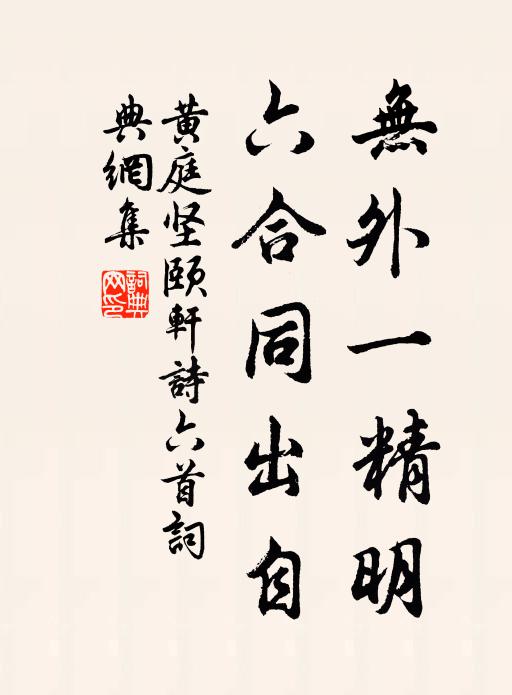 無外一精明
六合同出自
黄庭坚頤軒詩六首詞
典網集
詞典
网印